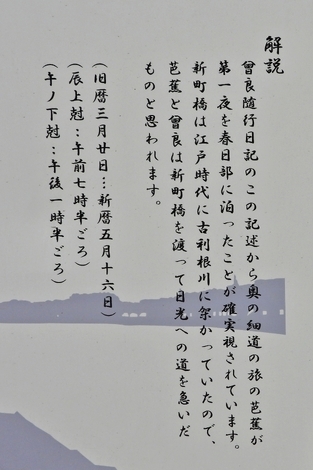 解説
曾良随行日記のこの記述から奥の細道の旅の芭蕉が
第一夜を春日部に泊ったことが確実視されています。
新町橋は江戸時代に古利根川に架かっていたので、
芭蕉と曾良は新町橋を渡って日光への道を急いだ
ものと思われます。
(旧暦三月廿日…新暦五月十六日)
(辰上尅：午前七時半ごろ)
(午ノ下尅：午後一時半ごろ)